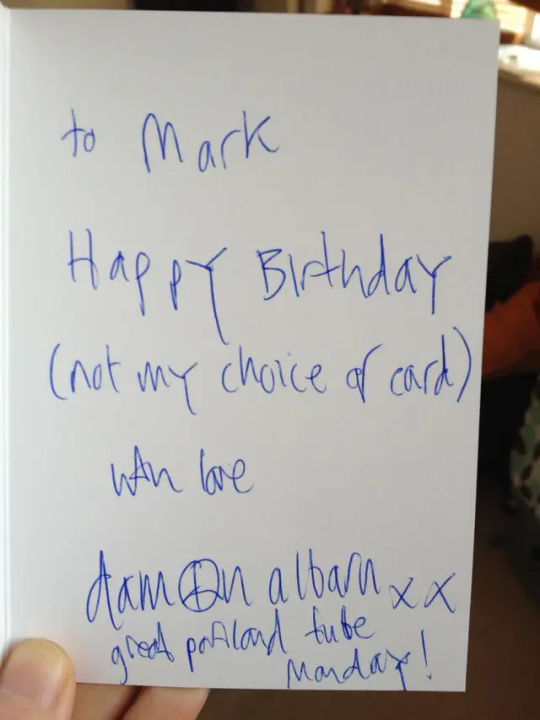 to Mark
Happy Birthday
(not my choice of card)
with love
damon albarn xx
great portland tube
Monday!